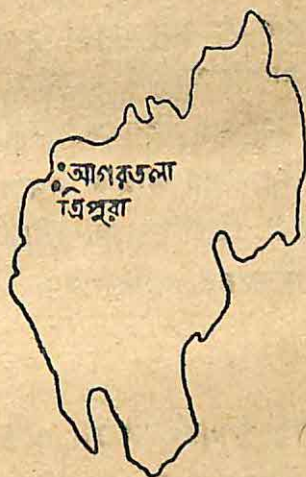 আগরতলা
ত্রিপুরা